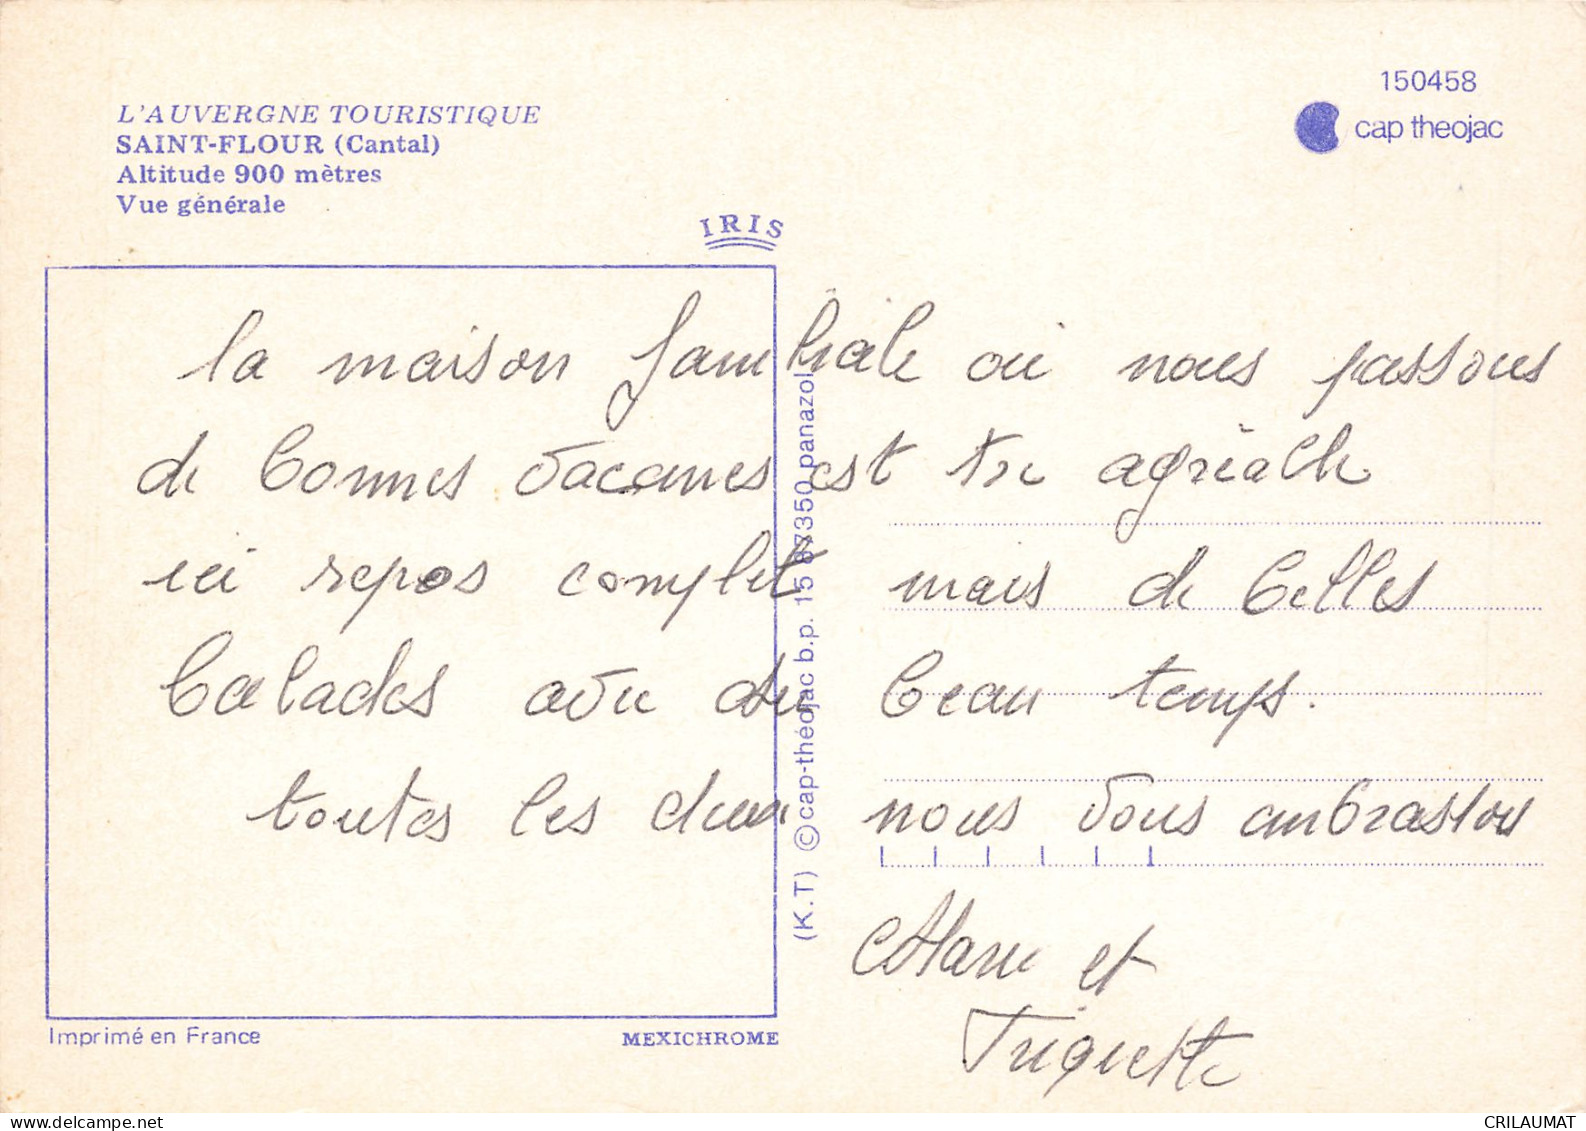 150458
cap theojac
L'AUVERGNE TOURISTIQUE
SAINT-FLOUR (Cantal)
Altitude 900 mètres
Vue générale
IRIS
la maison familiale où nous passons
de bonnes vacances est tre agréable
ici repos complet mais de belles
balades avec du beau temps.
toutes les deux nous vous embrassons
et
Triquette
(K.T) © cap-théojac b.p. 15 87350 panazol
Imprimé en France
MEXICHROME
CRILAUMAT